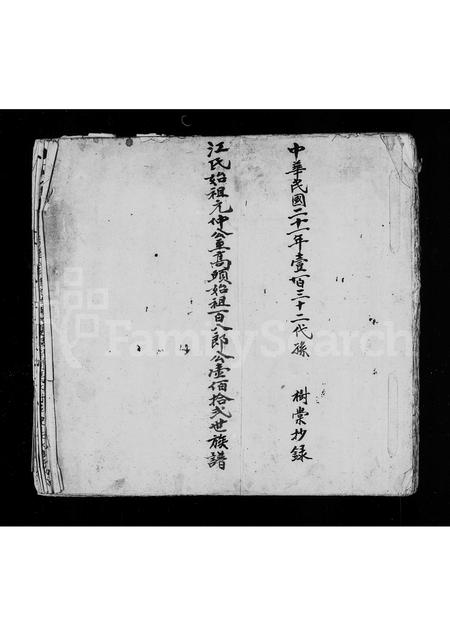 中華民國二十一年壹百三十二代孫 樹棠抄錄
江氏始祖元仲公重高頭始祖百八郎公壹佰拾弍世族譜
FamilySearch